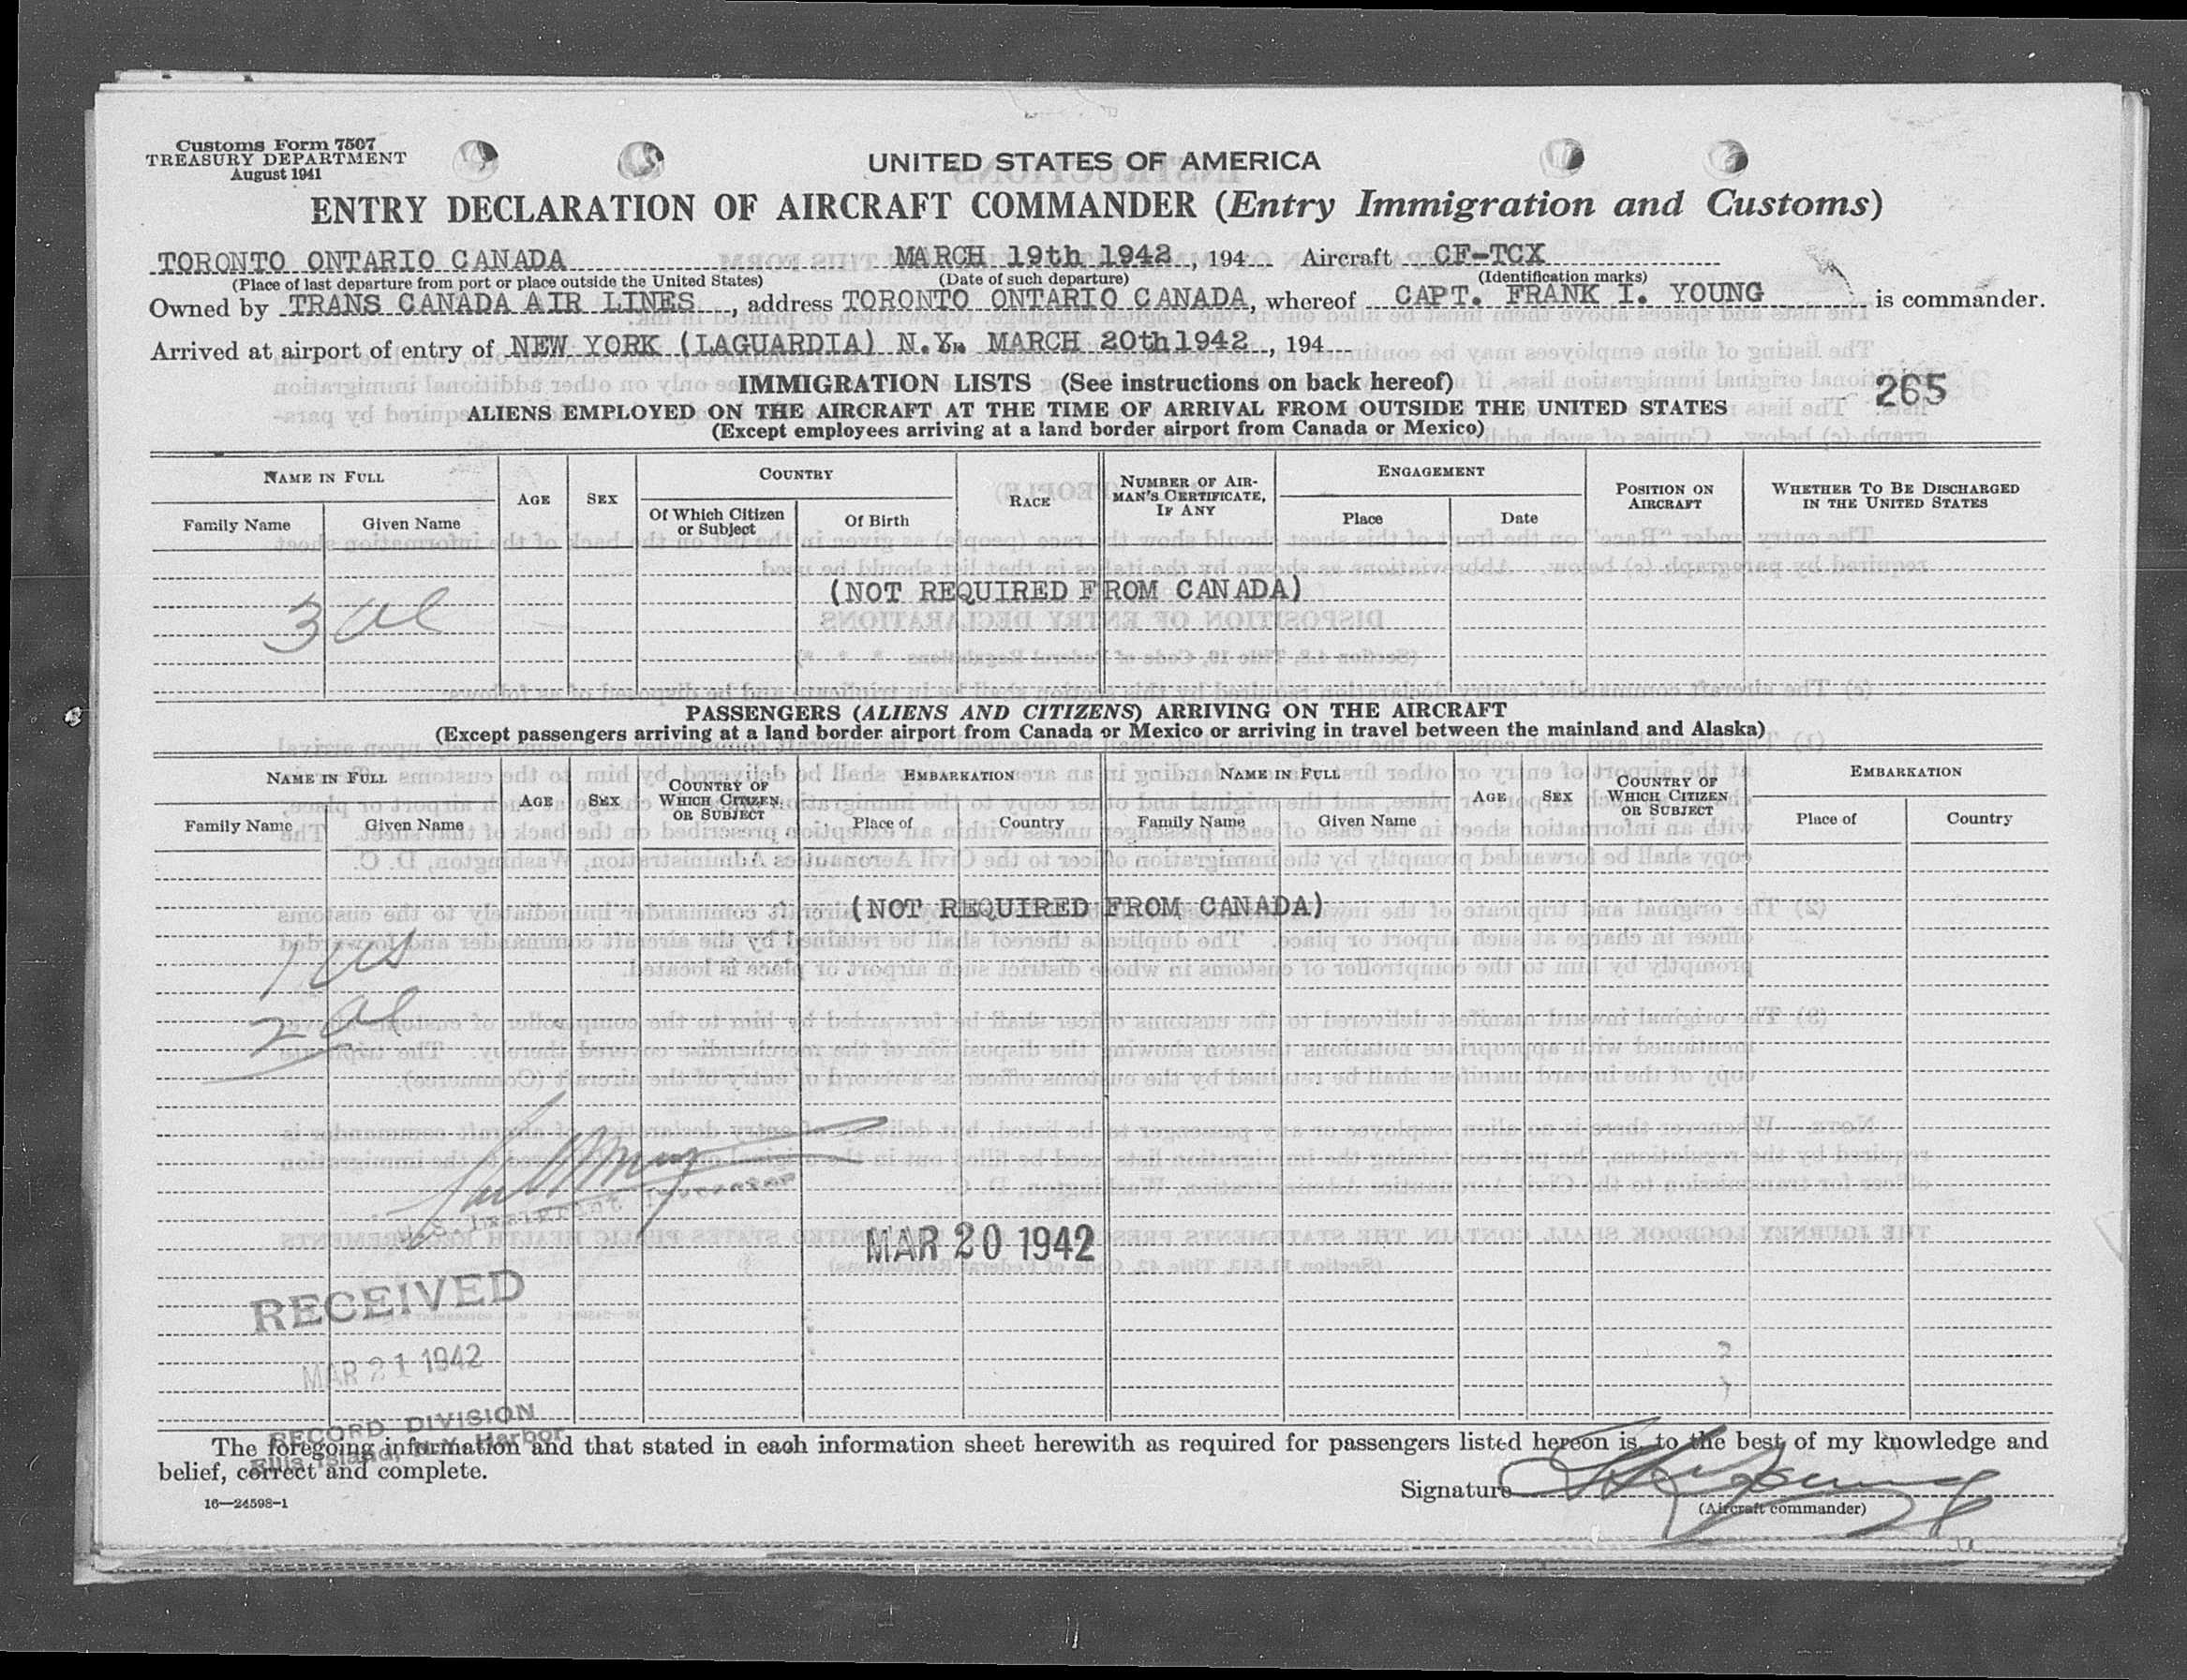 Customs Form 7507
TREASURY DEPARTMENT
August 1941
UNITED STATES OF AMERICA
ENTRY DECLARATION OF AIRCRAFT COMMANDER (Entry Immigration and Customs)
TORONTO ONTARIO CANADA MARCH 19th 1942, 194 Aircraft CF-TCX
(Place of last departure from port or place outside the United States) (Date of such departure) (Identification marks)
Owned by TRANS CANADA AIR LINES, address TORONTO ONTARIO CANADA, whereof CAPT. FRANK I. YOUNG is commander.
Arrived at airport of entry of NEW YORK (LAGUARDIA) N.Y. MARCH 20th 1942, 194
IMMIGRATION LISTS (See instructions on back hereof)
265
ALIENS EMPLOYED ON THE AIRCRAFT AT THE TIME OF ARRIVAL FROM OUTSIDE THE UNITED STATES
(Except employees arriving at a land border airport from Canada or Mexico)
NAME IN FULL AGE SEX COUNTRY RACE NUMBER OF AIRMAN'S CERTIFICATE, IF ANY ENGAGEMENT POSITION ON AIRCRAFT WHETHER TO BE DISCHARGED IN THE UNITED STATES
Family Name Given Name Of Which Citizen or Subject Of Birth Place Date
(NOT REQUIRED FROM CANADA)
3 al
PASSENGERS (ALIENS AND CITIZENS) ARRIVING ON THE AIRCRAFT
(Except passengers arriving at a land border airport from Canada or Mexico or arriving in travel between the mainland and Alaska)
NAME IN FULL AGE SEX COUNTRY OF WHICH CITIZEN OR SUBJECT EMBARKATION NAME IN FULL AGE SEX COUNTRY OF WHICH CITIZEN OR SUBJECT EMBARKATION
Family Name Given Name Place of Country Family Name Given Name Place of Country
(NOT REQUIRED FROM CANADA)
1 US
2 al
U. S. Immigrant Inspector
MAR 20 1942
RECEIVED
MAR 21 1942
RECORD DIVISION
Ellis Island, N.Y. Harbor
The foregoing information and that stated in each information sheet herewith as required for passengers listed hereon is, to the best of my knowledge and
belief, correct and complete.
Signature
16—24598-1
(Aircraft commander)